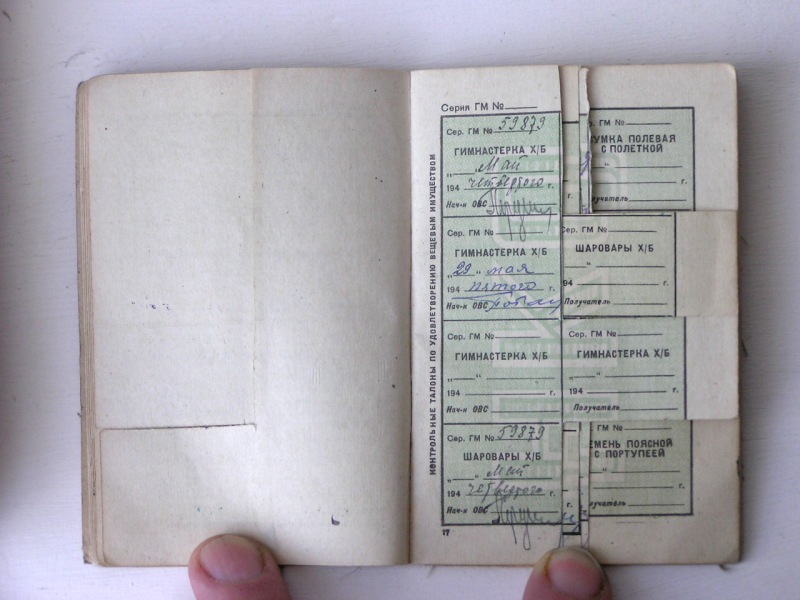 Серия ГМ №
КОНТРОЛЬНЫЕ ТАЛОНЫ ПО УДОВЛЕТВОРЕНИЮ ВЕЩЕВЫМ ИМУЩЕСТВОМ
Сер. ГМ № 59879
ГИМНАСТЕРКА Х/Б
„ “ Май
194 четвертого
Нач-к ОВС
Сер. ГМ №
ГИМНАСТЕРКА Х/Б
„29“ мая
194 пятого г.
Нач-к ОВС
Сер. ГМ №
ГИМНАСТЕРКА Х/Б
„ “
194 г.
Нач-к ОВС
Сер. ГМ № 59879
ШАРОВАРЫ Х/Б
„ “ Май
194 четвертого
Нач-к ОВС
17
ГМ №
УМКА ПОЛЕВАЯ
С ПОЛЕТКОЙ
“
г.
олучатель
Сер. ГМ №
ШАРОВАРЫ Х/Б
“
94 г.
Получатель
Сер. ГМ №
ГИМНАСТЕРКА Х/Б
„ “
194 г.
Получатель
ГМ №
ЕМЕНЬ ПОЯСНОЙ
С ПОРТУПЕЕЙ
“
г.
лучатель